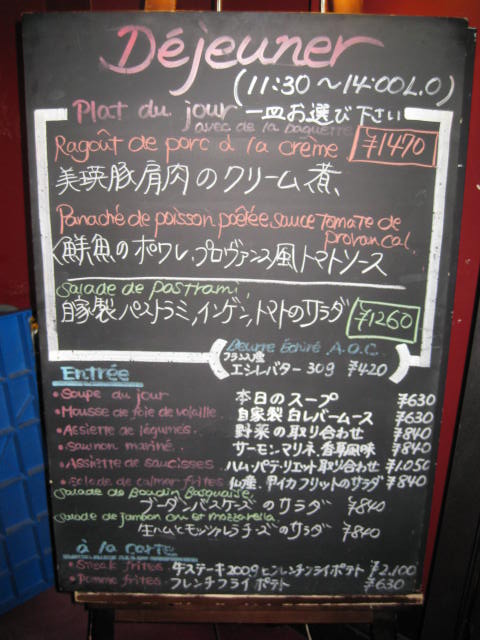 Déjeuner
(11:30～14:00 L.O)
Plat du jour 一皿お選び下さい
avec de la baguette
Ragoût de porc à la crème ¥1470
美瑛豚肩肉のクリーム煮、
Panaché de poisson poêlée sauce tomate de
provancal.
鮮魚のポワレ、プロヴァンス風トマトソース
Salade de pastrami,
自家製パストラミ、インゲン、トマトのサラダ ¥1260
Beurre Échiré A.O.C.
フランス産
エシレバター 30g ¥420
Entrée
・Soupe du jour 本日のスープ ¥630
・Mousse de foie de volaille. 自家製白レバームース ¥630
・Assiette de légumes. 野菜の取り合わせ ¥840
・saumon mariné. サーモンマリネ、香草風味 ¥840
・Assiette de saucisses ハム、パテ、リエット取り合わせ ¥1.050
・salade de calmar frites 甲イカフリットのサラダ ¥840
salade de Boudin Basquaise
ブーダンバスケーズのサラダ ¥840
salade de jambon cru et mozzarella.
生ハムとモッツァレラチーズのサラダ ¥840
à la carte
・Steak frites. 牛ステーキ200g フレンチフライポテト ¥2.100
・Pomme frites. フレンチフライポテト ¥630